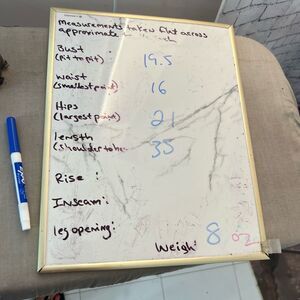 Measurements taken flat across
approximate
Bust
(pit to pit) 19.5
Waist
(smallest point) 16
Hips
(largest point) 21
length
(shoulder to hem 35
Rise :
Inseam :
leg opening :
Weigh: 8 oz